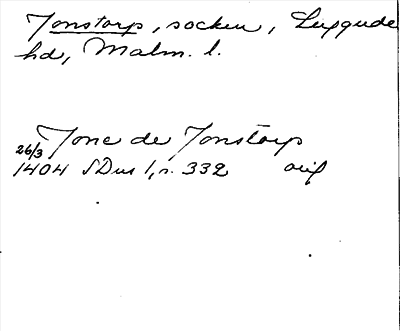 Jonstorp, socken, Luggude
hd, Malm. l.
Jone de Jonstorp
26/3
1404 SDns 1, s. 332 orig